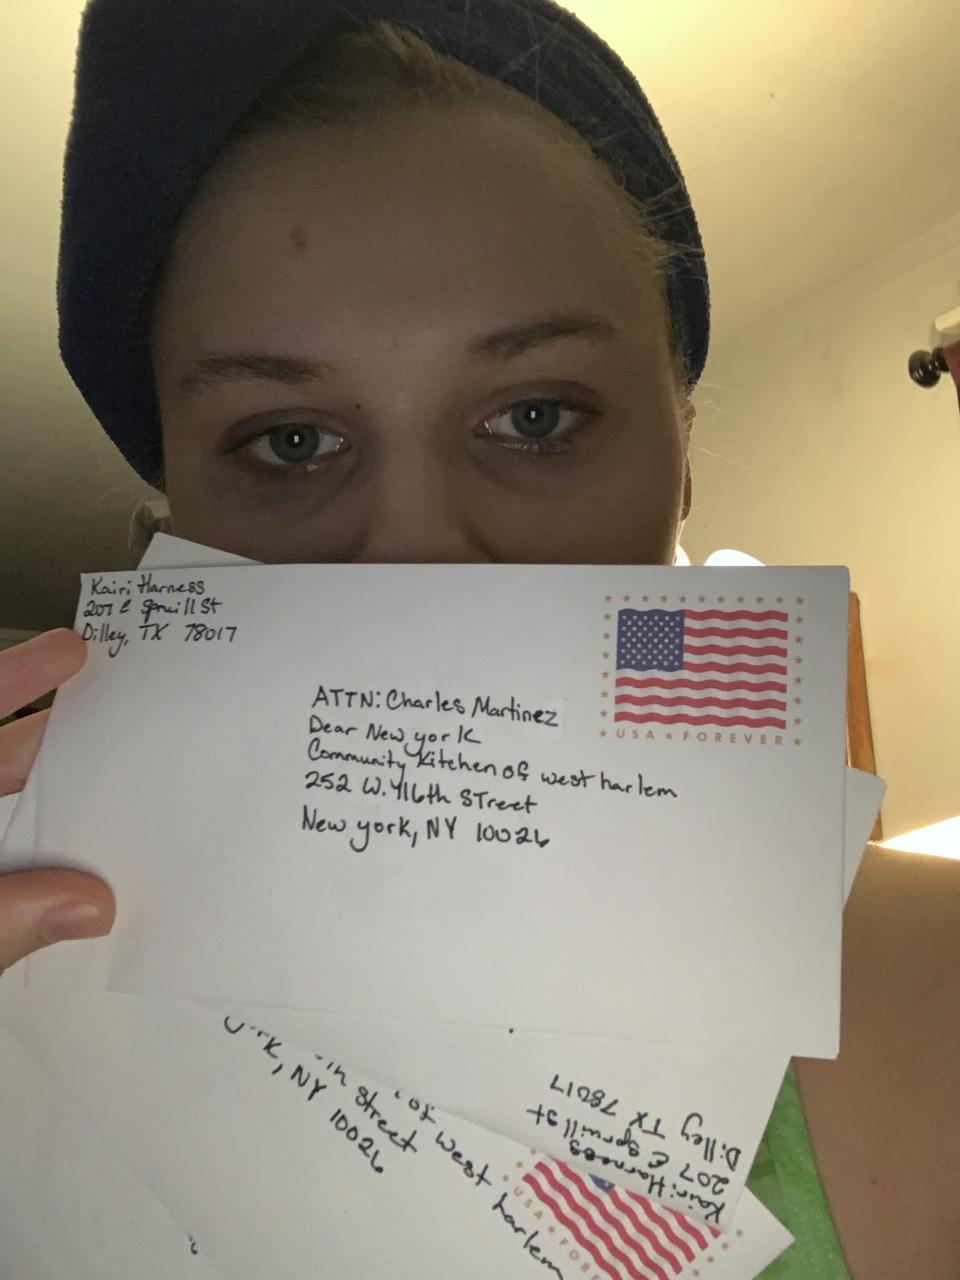 Kairi Harness
207 E Spruill St
Dilley, TX 78017
USA ★ FOREVER
ATTN: Charles Martinez
Dear New york
Community Kitchen of west harlem
252 W. 116th STreet
New york, NY 10026
Kairi Harness
207 E Spruill st
Dilley TX 78017
of west harlem
street
rk, NY 10026
USA ★ FORE